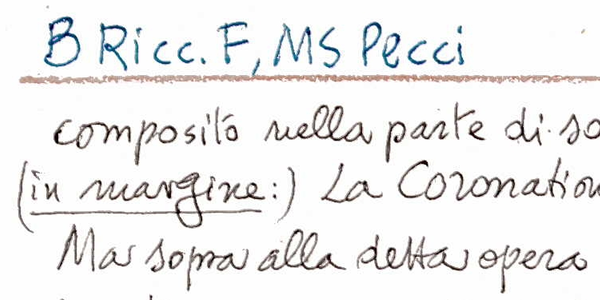 B Ricc. F, MS Pecci
composito nella parte di so
(in margine:) La Coronation
Ma sopra alla detta opera